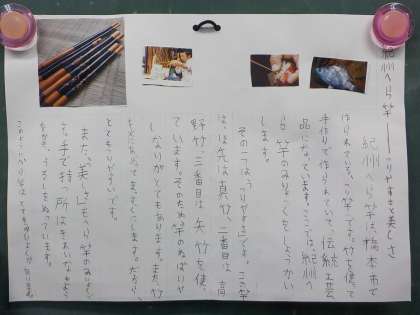 紀州へら竿――つりやすさと美しさ
紀州へら竿は、橋本市で
作られている、つり竿です。竹を使って
手作りで作られていて、伝統工芸
品になっています。ここでは、紀州へ
ら竿のみりょくをしょうかい
します。
その一つは、つりやすさです。この竿
は、ほ先は真竹、二番目は、高
野竹、三番目は矢竹を使っ
ています。そのため、竿のねばりや
しないがとてもあります。また、竹
をとてもつりやすいです。
また、美しさもへら竿のみりょく
です。手で持つ所はきれいなもよう
うるしをぬっています。
このように、へら竿はとても